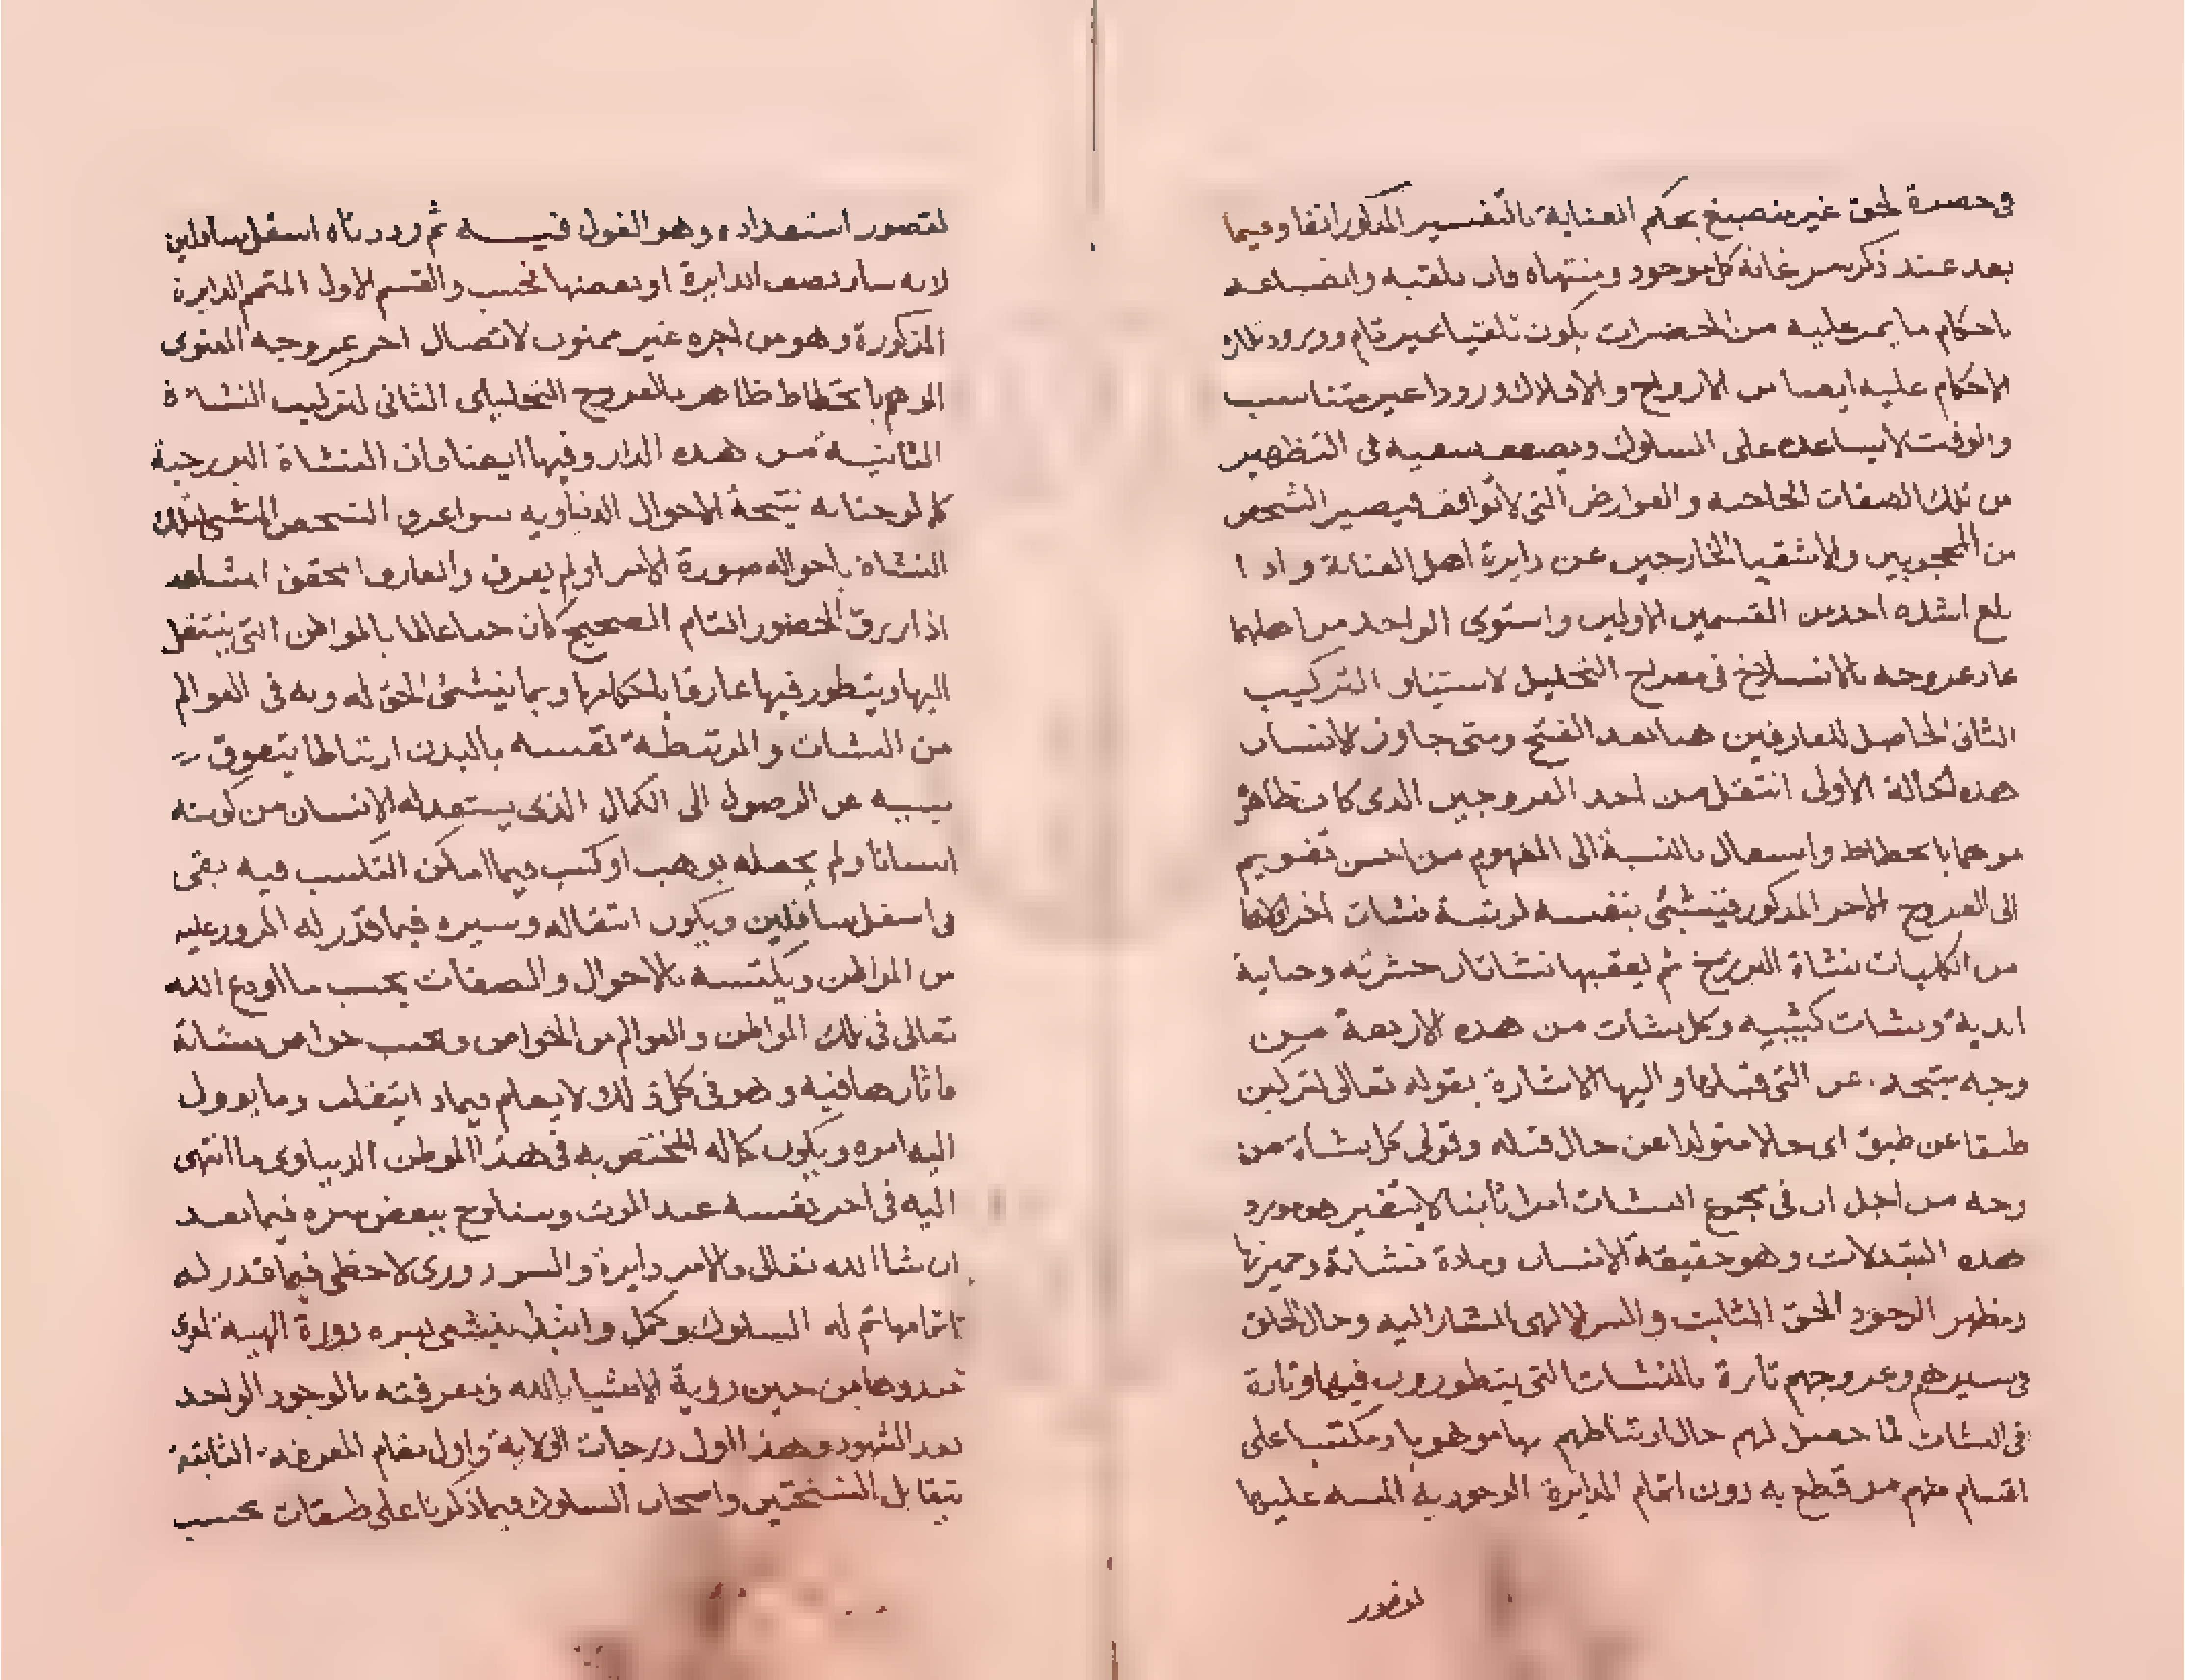 في حضرة الحق غير منصبغ بحكم العناية بالتفسير المذكور انفا وفيما
بعد عند ذكر سر غاية كل موجود ومنتهاه وان تلقيه وانصباغه
باحكام ما يمر عليه من الحضرات يكون تلقيا غير تام وورود تلك
الاحكام عليه ايضا من الارواح والافلاك ورودا غير متناسب
والوقت لا يساعده على السلوك ويضعف سعيه فى التطهير
من تلك الصفات والعوارض التي لا توافق فيصير الشخص
من المحجوبين والاشقيا الخارجين عن دايرة اهل العناية واذا
بلغ اشده احد من القسمين الاولين واستوى الواحد من اهلهما
عاد عروجه بالانسلاخ في معراج التحليل لاستيناف التركيب
الثانى الحاصل للعارفين هنا بعد الفتح ومتى جاوز الانسان
هذه الحالة الاولى انتقل من احد العروجين الذى كان ظاهره
موهما بانحطاط بالنسبة الى المفهوم من احسن تقويم
الى العروج الاخر المذكور فينشئ بنفسه لربتة نشات اخر
من الكليات نشاة البرزخ ثم يعقبها نشاتان حشرية وجنانية
ابدية ونشات كثيبيه وكل نشات من هذه الاربعة من
وجه ينتجه عن التى قبلها واليها الاشارة بقوله تعالى لتركبن
طبقا عن طبق اى حالا متولدا عن حال قبله وقولى كل نشاة من
وجه من اجل ان فى مجموع النشات امرا ثابتا لا يتغير هو مورد
هذه التبدلات وهو حقيقة الانسان ومادة نشاته وخميرتها
ومظهر الوجود الحق الثابت والسر الالهى المشار اليه وحال الخلق
في سيرهم وعروجهم تارة بالنشات التي يتطورون فيها وتارة
في النشات لما حصل لهم حال ارتباطهم بها موهوبا ومكتسبا على
اقسام منهم من قطع به دون اتمام الدايرة الوجودية المنبه عليها
لقصور
لقصور استعداده وهو المقول فيه ثم رددناه اسفل سافلين
لانه سار نصف الدايرة او بعضها فحسب والقسم الاول المتمم الدايرة
المذكورة وهو من اجره غير ممنون لاتصال اخر عروجه المعنوى
الموهم بانحطاط ظاهر بالعروج التحليلى الثانى لتركيب النشاة
الثانية من هذه الدار وفيها ايضا فان النشاة البرزخية
كما لوحنا به نتيجة الاحوال الدنياويه سوا عرف الشخص المنشئ تلك
النشاة باحواله صورة الامر او لم يعرف والعارف المحقق المشاهد
اذا رزق الحضور التام الصحيح كان حينا عالما بالمواطن التى ينتقل
اليها ويتطور فيها عارفا باحكامها وبما ينشئ الحق له وبه فى العوالم
من النشات والمرتبطة نفسه بالبدن ارتباطا يتعوق
بسببه عن الوصول الى الكمال الذى يستعد له الانسان من كونه
انسانا ولم يحصله بوهب او كسب فيما امكن التكسب فيه بقى
فى اسفل سافلين ويكون انتقاله وسيره فيما قدر له المرور عليه
من المواطن ويكتسبه بالاحوال والصفات بحسب ما اودع الله
تعالى فى تلك المواطن والعوالم من الخواص وبحسب خواص نشاته
واثارها فيه وهو فى كل ذلك لا يعلم فيماذا ينقلب وما يوول
اليه امره ويكون كماله المختص به فى هذا الموطن الدنياوى ما انتهى
اليه فى اخر نفسه عند الموت وسنلوح ببعض سره فيما بعد
ان شا الله تعالى فالامر دايرة والسر دورى لاحظى فيما قدر له
اتمامها تم له السلوك وكمل وانتهى ينشى بسيره دورة الهية اخرى
مبدوها من حين روية الاشيا بالله ومعرفته بالوجود الواحد
بعد الشهود وهذا اول درجات الولاية واول مقام المعرفة الثابتة
يتقابل النسختين واصحاب السلوك فيما ذكرنا على طبقات بحسب